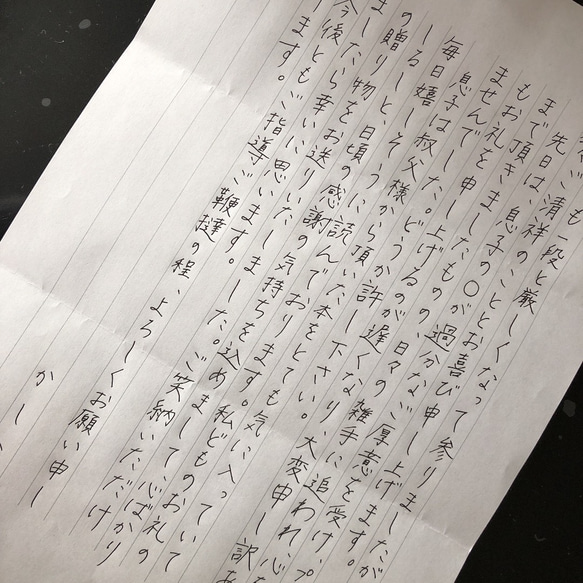 も一段と厳しくなって参りましたが
清祥のこととお喜び申し上げます。
先日は、息子の〇が過分なご厚意を受け、プ
まで頂きましたものの、日々の雑手に追われ、心な
もお礼を申し上げるのが遅くなり、大変申し訳あ
ませんでした。どうか許し下さい。
息子は叔父様から頂いた本をとても気に入っていて
毎日嬉しそうに読んでおります。私どものお礼の
しるしと日頃の感謝の気持ちを込めまして心ばかり
の贈り物をお送りいたしました。ご笑納いただけ
ましたら幸いに思います。
今後ともご指導ご鞭撻の程、よろしくお願い申し
ます。
かし